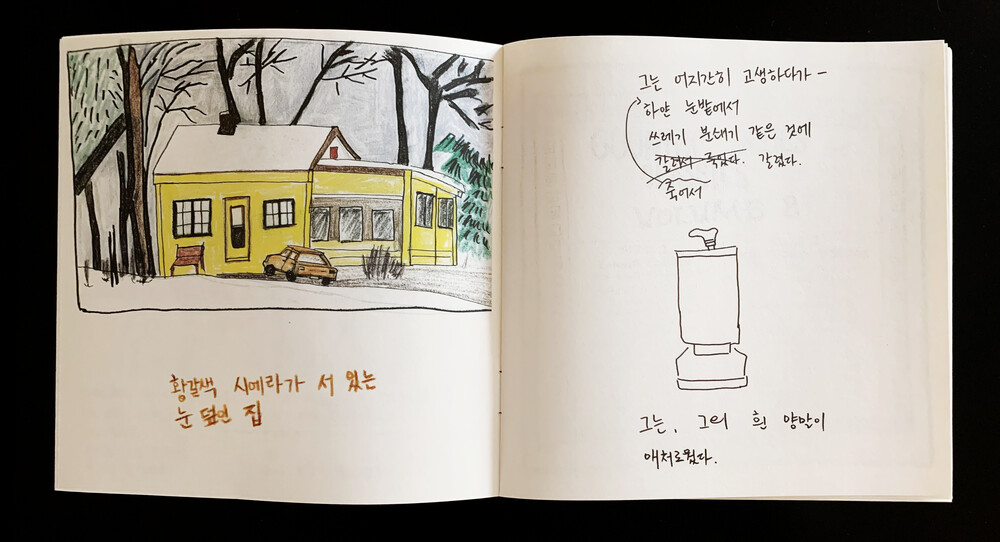 황갈색 시에라가 서 있는
눈 덮인 집
그는 어지간히 고생하다가 -
하얀 눈밭에서
쓰레기 분쇄기 같은 것에
갈려서 죽었다. 갈렸다.
죽어서
그는, 그의 흰 양말이
애처로웠다.